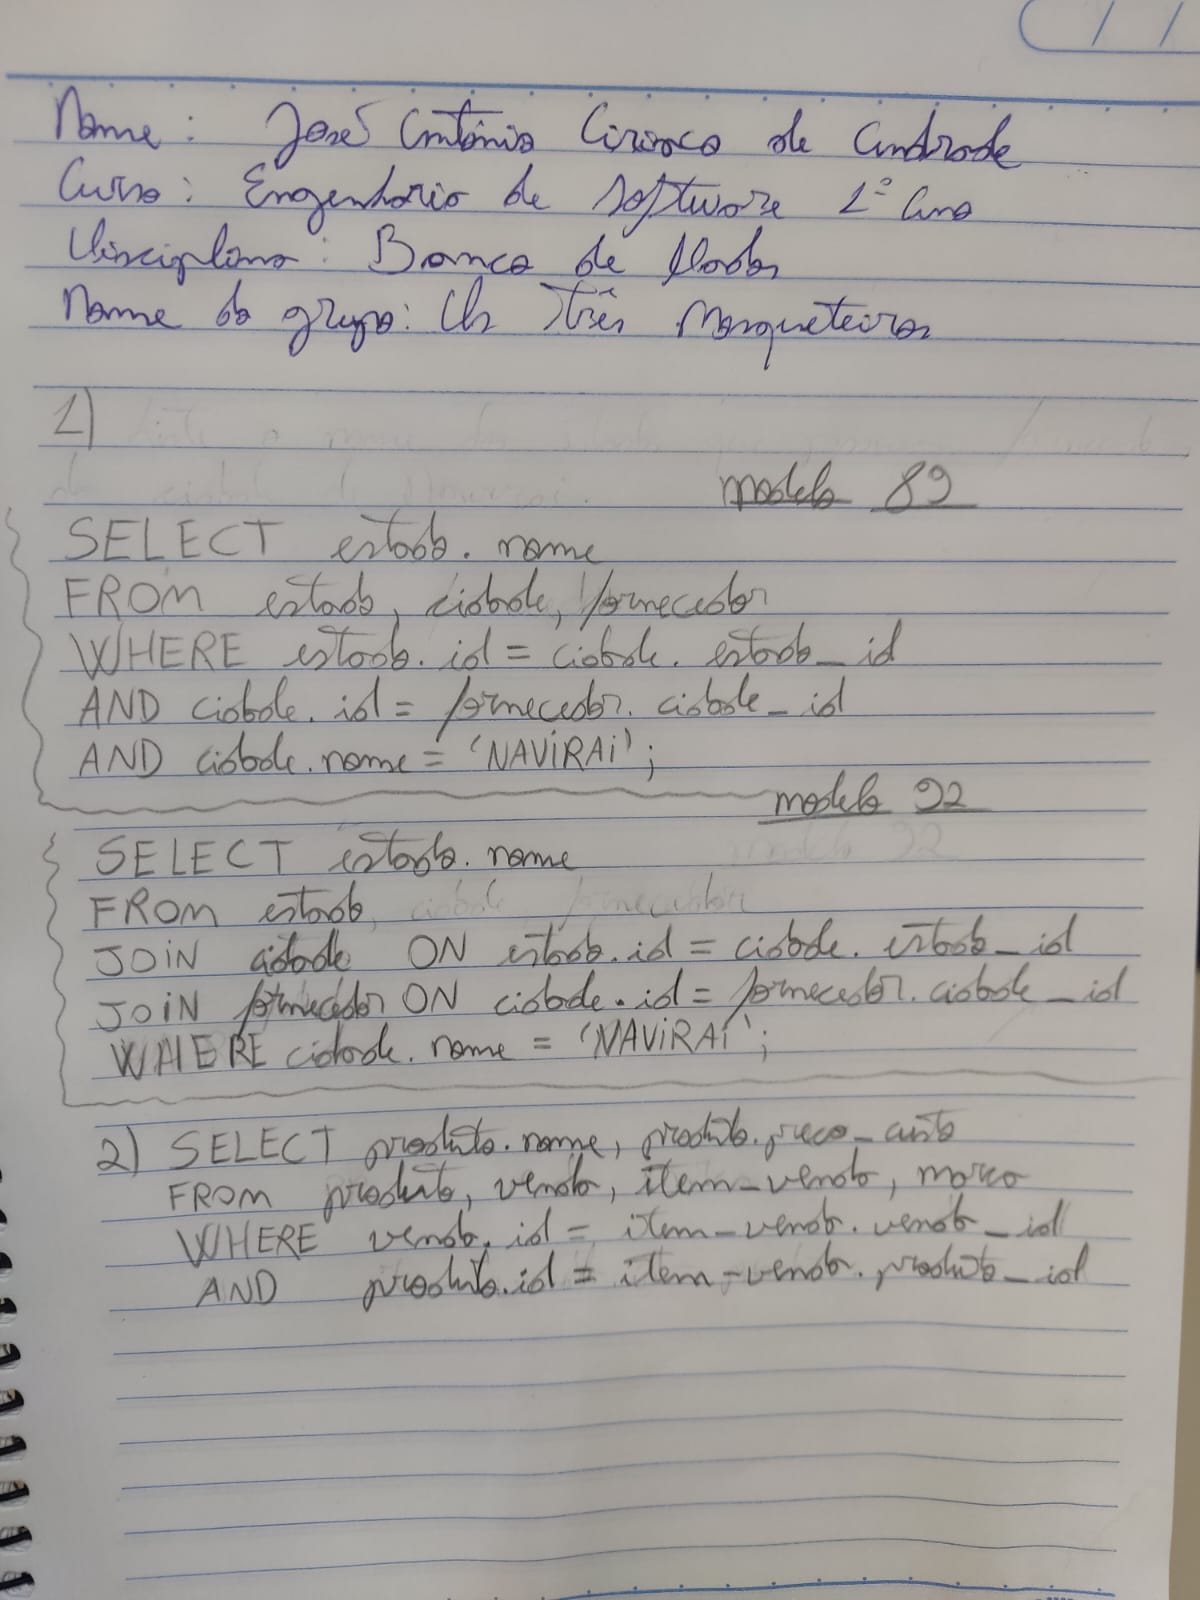 Nome: José Antônio Ciriaco de Andrade
Curso: Engenharia de Software 1º Ano
Disciplina: Banco de Dados
Nome do grupo: Os Três Mosqueteiros
1)
modelo 89
SELECT estado.nome
FROM estado, cidade, fornecedor
WHERE estado.id = cidade.estado_id
AND cidade.id = fornecedor.cidade_id
AND cidade.nome = 'NAVIRAI';
modelo 92
SELECT estado.nome
FROM estado
JOIN cidade ON estado.id = cidade.estado_id
JOIN fornecedor ON cidade.id = fornecedor.cidade_id
WHERE cidade.nome = 'NAVIRAI';
2) SELECT produto.nome, produto.preco_custo
FROM produto, venda, item_venda, marca
WHERE venda.id = item_venda.venda_id
AND produto.id = item_venda.produto_id